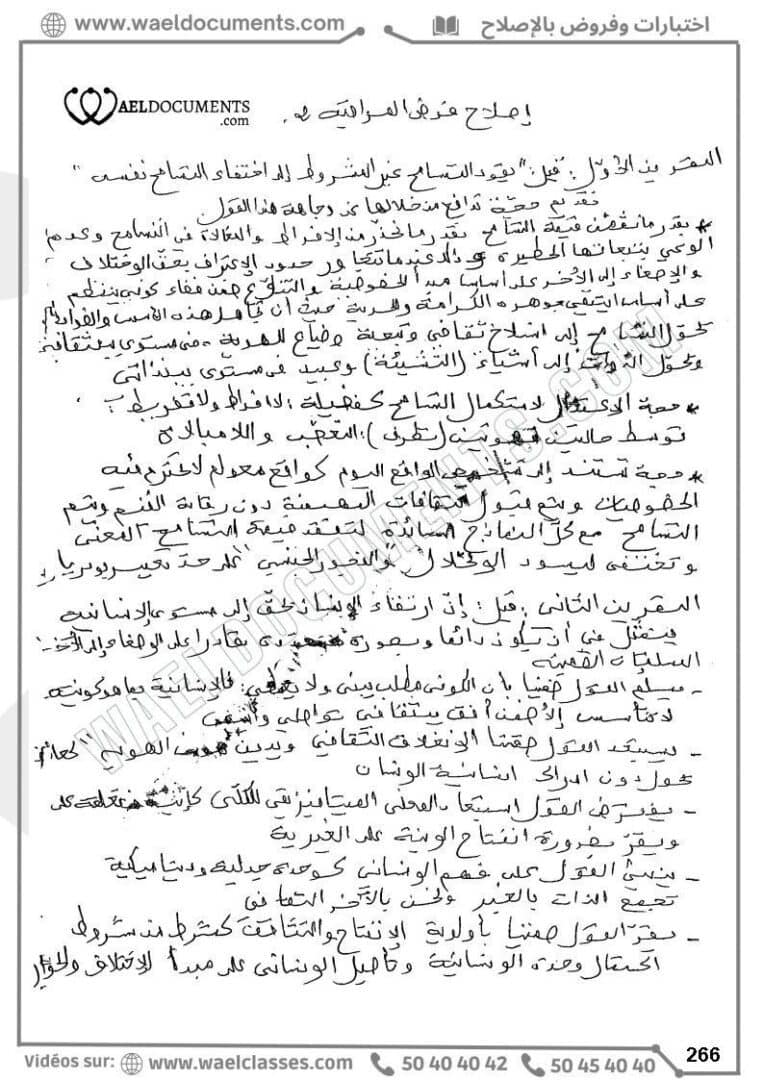 www.waeldocuments.com
اختبارات وفروض بالإصلاح
WAELDOCUMENTS
.com
إصلاح فرض المراقبة
التمرين الأول: قيل: "يقود التسامح غير المشروط إلى اختفاء التسامح نفسه"
تقديم حجة تدافع من خلالها عن وجاهة هذا القول
بقدر ما قيمة التسامح بقدر ما نحذر من الإفراط والمغالاة في التسامح وعدم
الوعي بتبعاتها الخطيرة وذلك عندما حدود الاعتراف بحق الاختلاف
والإصغاء إلى الآخر على أساس مبدأ الخصوصية والتنوع ضمن فضاء كوني ينتظم
على أساس إيتيقي جوهره الكرامة والحرية حيث أن تجاهل هذه الأسس والضوابط
تحول التسامح إلى انسلاخ ثقافي وتبعية وضياع للهوية في مستوى بيثقافي
وتحول الذوات إلى أشياء (التشيئة) وعبيد في مستوى بينذاتي
* حجة الاعتدال لاستكمال التسامح كفضيلة: لا إفراط ولا تفريط:
توسط حالتين (تطرف): التعصب واللامبالاة
* حجة تستند إلى الواقع اليوم كواقع معولم لا تحترم فيه
الخصوصيات ويتم قبول الثقافات المهيمنة دون رقابة القيم ويتم
التسامح مع كل النماذج السائدة لتفتقد قيمة التسامح المعنى
وتختفي ليسود الاختلال على حد تعبير بودريار
التمرين الثاني: قيل: إن ارتقاء الإنسان بحق إلى مستوى الإنسانية
يتمثل في أن يكون دائما وبصورة قادرا على الإصغاء إلى الآخر
المسلمات الضمنية
- يسلم القول ضمنيا بأن الكوني مطلب بيني ولا فالإنسانية بما هو كونية
لا تتأسس إلا ضمن أفق بيثقافي تواصلي
- يستبعد القول ضمنيا الانغلاق الثقافي ويدين الهوية كعائق
تحول دون إدراك إنسانية الإنسان
- يفترض القول استبعاد المعنى الميتافيزيقي للكلي
ويقر بضرورة انفتاح الإنية على الغيرية
- ينبني القول على فهم الإنساني كوحدة جدلية وديناميكية
تجمع الذات بالغير ونحن بالآخر الثقافي
- يقر القول ضمنيا بأولوية الانفتاح والتثاقف كشرط من شروط
اكتمال وحدة الإنسانية وتأصيل الإنساني على مبدأ الاختلاف والحوار
WAELDOCUMENTS.COM
Vidéos sur: www.waelclasses.com 50 40 40 42 50 45 40 40
266